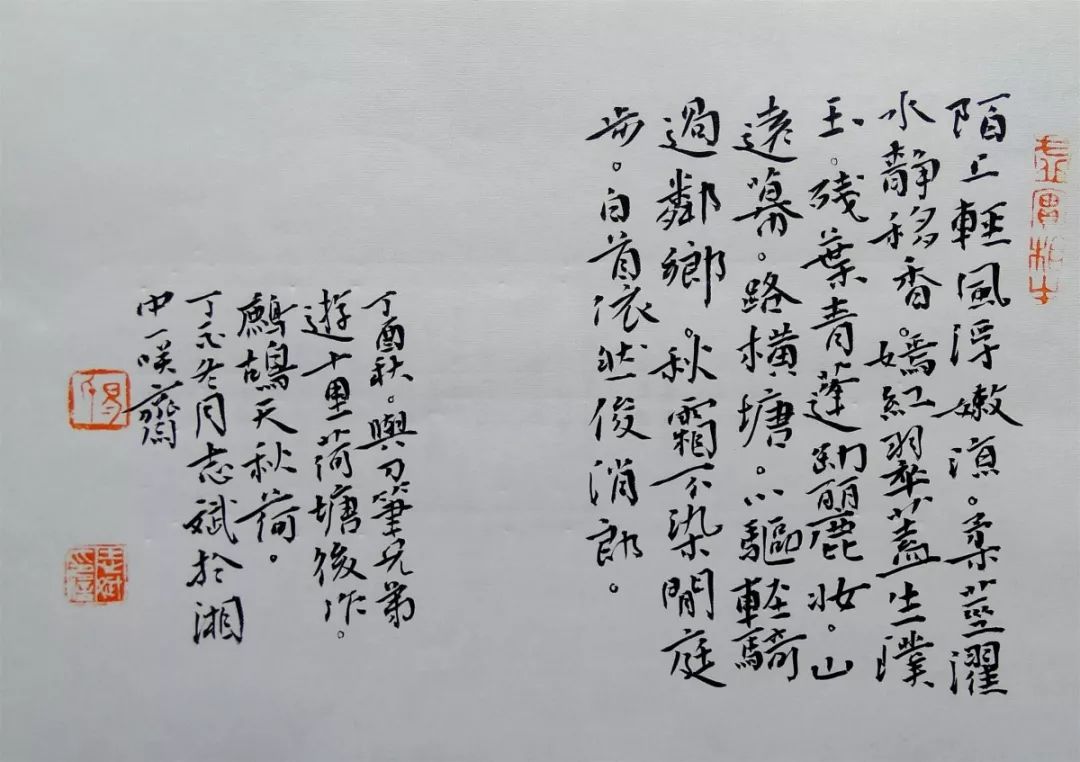 陌上輕風浮嫩涼。柔莖濯
水靜移香。嫣紅翠蓋生漢
玉。殘葉青蓬卸麗妝。山
遠幕。路橫塘。小驅輕騎
過鄰鄉。秋霜不染閒庭
步。白首依然俊消郎。
丁酉秋。與刀筆兄弟
遊十里荷塘後作。
鷓鴣天秋荷。
丁酉冬月志斌於湘
中一咲齋